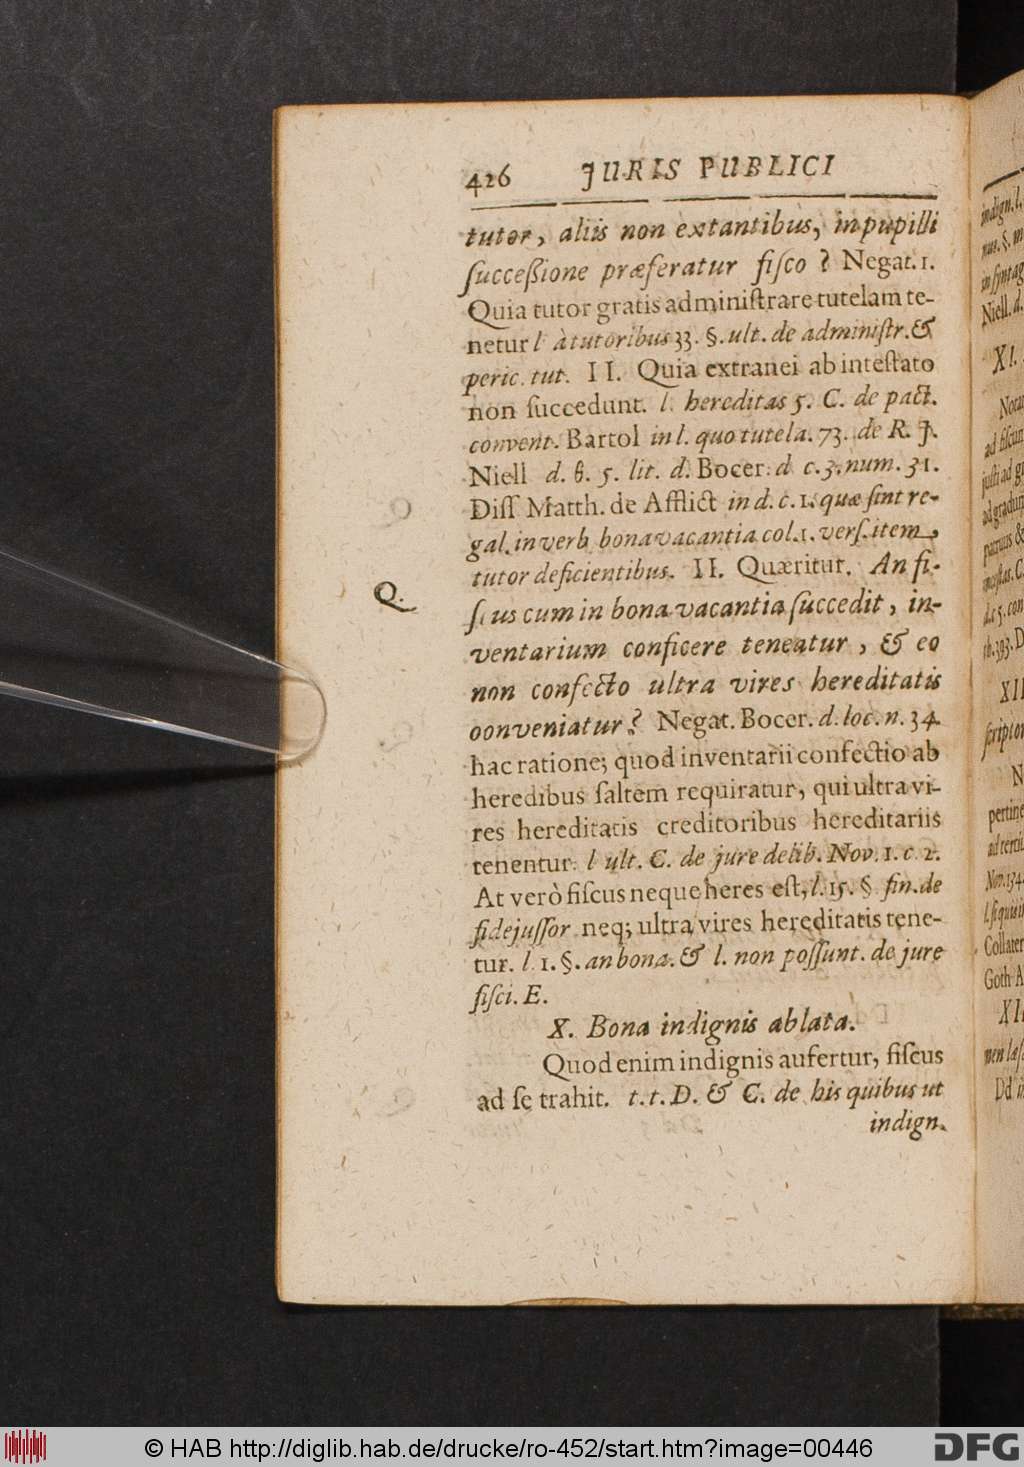 426 JURIS PUBLICI
tutor, aliis non extantibus, in pupilli
ſucceßione præferatur fiſco ? Negat. 1.
Quia tutor gratis adminiſtrare tutelam te-
netur l à tutoribus 33. §. ult. de adminiſtr. &
peric. tut. II. Quia extranei ab inteſtato
non ſuccedunt. l. hereditas 5. C. de pact.
convent. Bartol in l. quo tutela. 73. de R. J.
Niell d. θ. 5. lit. d. Bocer. d c. 3. num. 31.
Diſſ Matth. de Afflict in d. c. 1. quæ ſint re-
gal. in verb bona vacantia col. 1. verſ. item,
tutor deficientibus. II. Quæritur. An fi-
Q.
ſcus cum in bona vacantia ſuccedit, in-
ventarium conficere teneatur, & eo
non confecto ultra vires hereditatis
oonveniatur? Negat. Bocer. d. loc. n. 34.
hac ratione; quod inventarii confectio ab
heredibus ſaltem requiratur, qui ultra vi-
res hereditatis creditoribus hereditariis
tenentur. l ult. C. de jure delib. Nov. 1. c. 2.
At verò fiſcus neque heres eſt, l. 15. § fin. de
fidejuſſor neq; ultra vires hereditatis tene-
tur. l. 1. §. an bona. & l. non poſſunt. de jure
fiſci. E.
X. Bona indignis ablata.
Quod enim indignis aufertur, fiſcus
ad ſe trahit. t. t. D. & C. de his quibus ut
indign.
indign. l.
Niell. d.
XI.
ad fiſcum
XII
ſcriptor
N
pertine
Collater
Goth A
XII
Dd
© HAB http://diglib.hab.de/drucke/ro-452/start.htm?image=00446
DFG